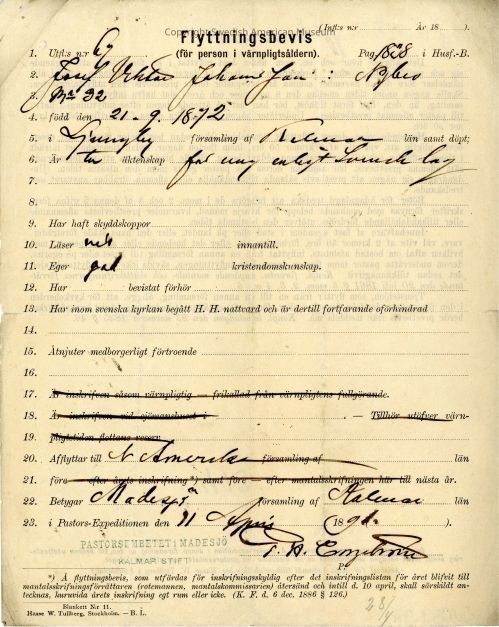 Copyright Swedish American Museum
(Infl: n:r År 18 ).
Flyttningsbevis
(för person i värnpligtsåldern).
1. Utfl: n:r 67 Pag 1828 i Husf.-B.
2. Josef Viktor Johansson: Nybro
3. No 32
4. född den 21-9. 1872
5. i Ljungby församling af Kalmar län samt döpt;
6. Är äktenskap enligt Svensk lag
7.
8.
9. Har haft skyddskoppor
10. Läser innantill.
11. Eger god kristendomskunskap.
12. Har bevistat förhör
13. Har inom svenska kyrkan begått H. H. nattvard och är dertill fortfarande oförhindrad
14.
15. Åtnjuter medborgerligt förtroende
16.
17. Är inskrifven såsom värnpligtig — frikallad från värnpligtens fullgörande.
18. Är inskrifven vid sjömanshuset i — Tillhör utöfver värn-
19. pligtstiden flottans reserv
20. Afflyttar till N Amerika församling af län
21. före — efter årets inskrifning*) samt före — efter mantalsskrifningen här till nästa år.
22. Betygar Madesjö församling af Kalmar län
23. i Pastors-Expeditionen den 11 April 189
PASTORSEMBETET I MADESJÖ
KALMAR STIFT
P.
*) Å flyttningsbevis, som utfärdas för inskrifningsskyldig efter det inskrifningslistan för året blifvit till
mantalsskrifningsförrättaren (rotemannen, mantalskommissarien) återsänd och intill d. 10 april, skall särskildt an-
tecknas, huruvida årets inskrifning egt rum eller icke. (K. F. d. 6 dec. 1886 § 126.)
Blankett Nr 11.
Haase W. Tullberg, Stockholm. — B. L.